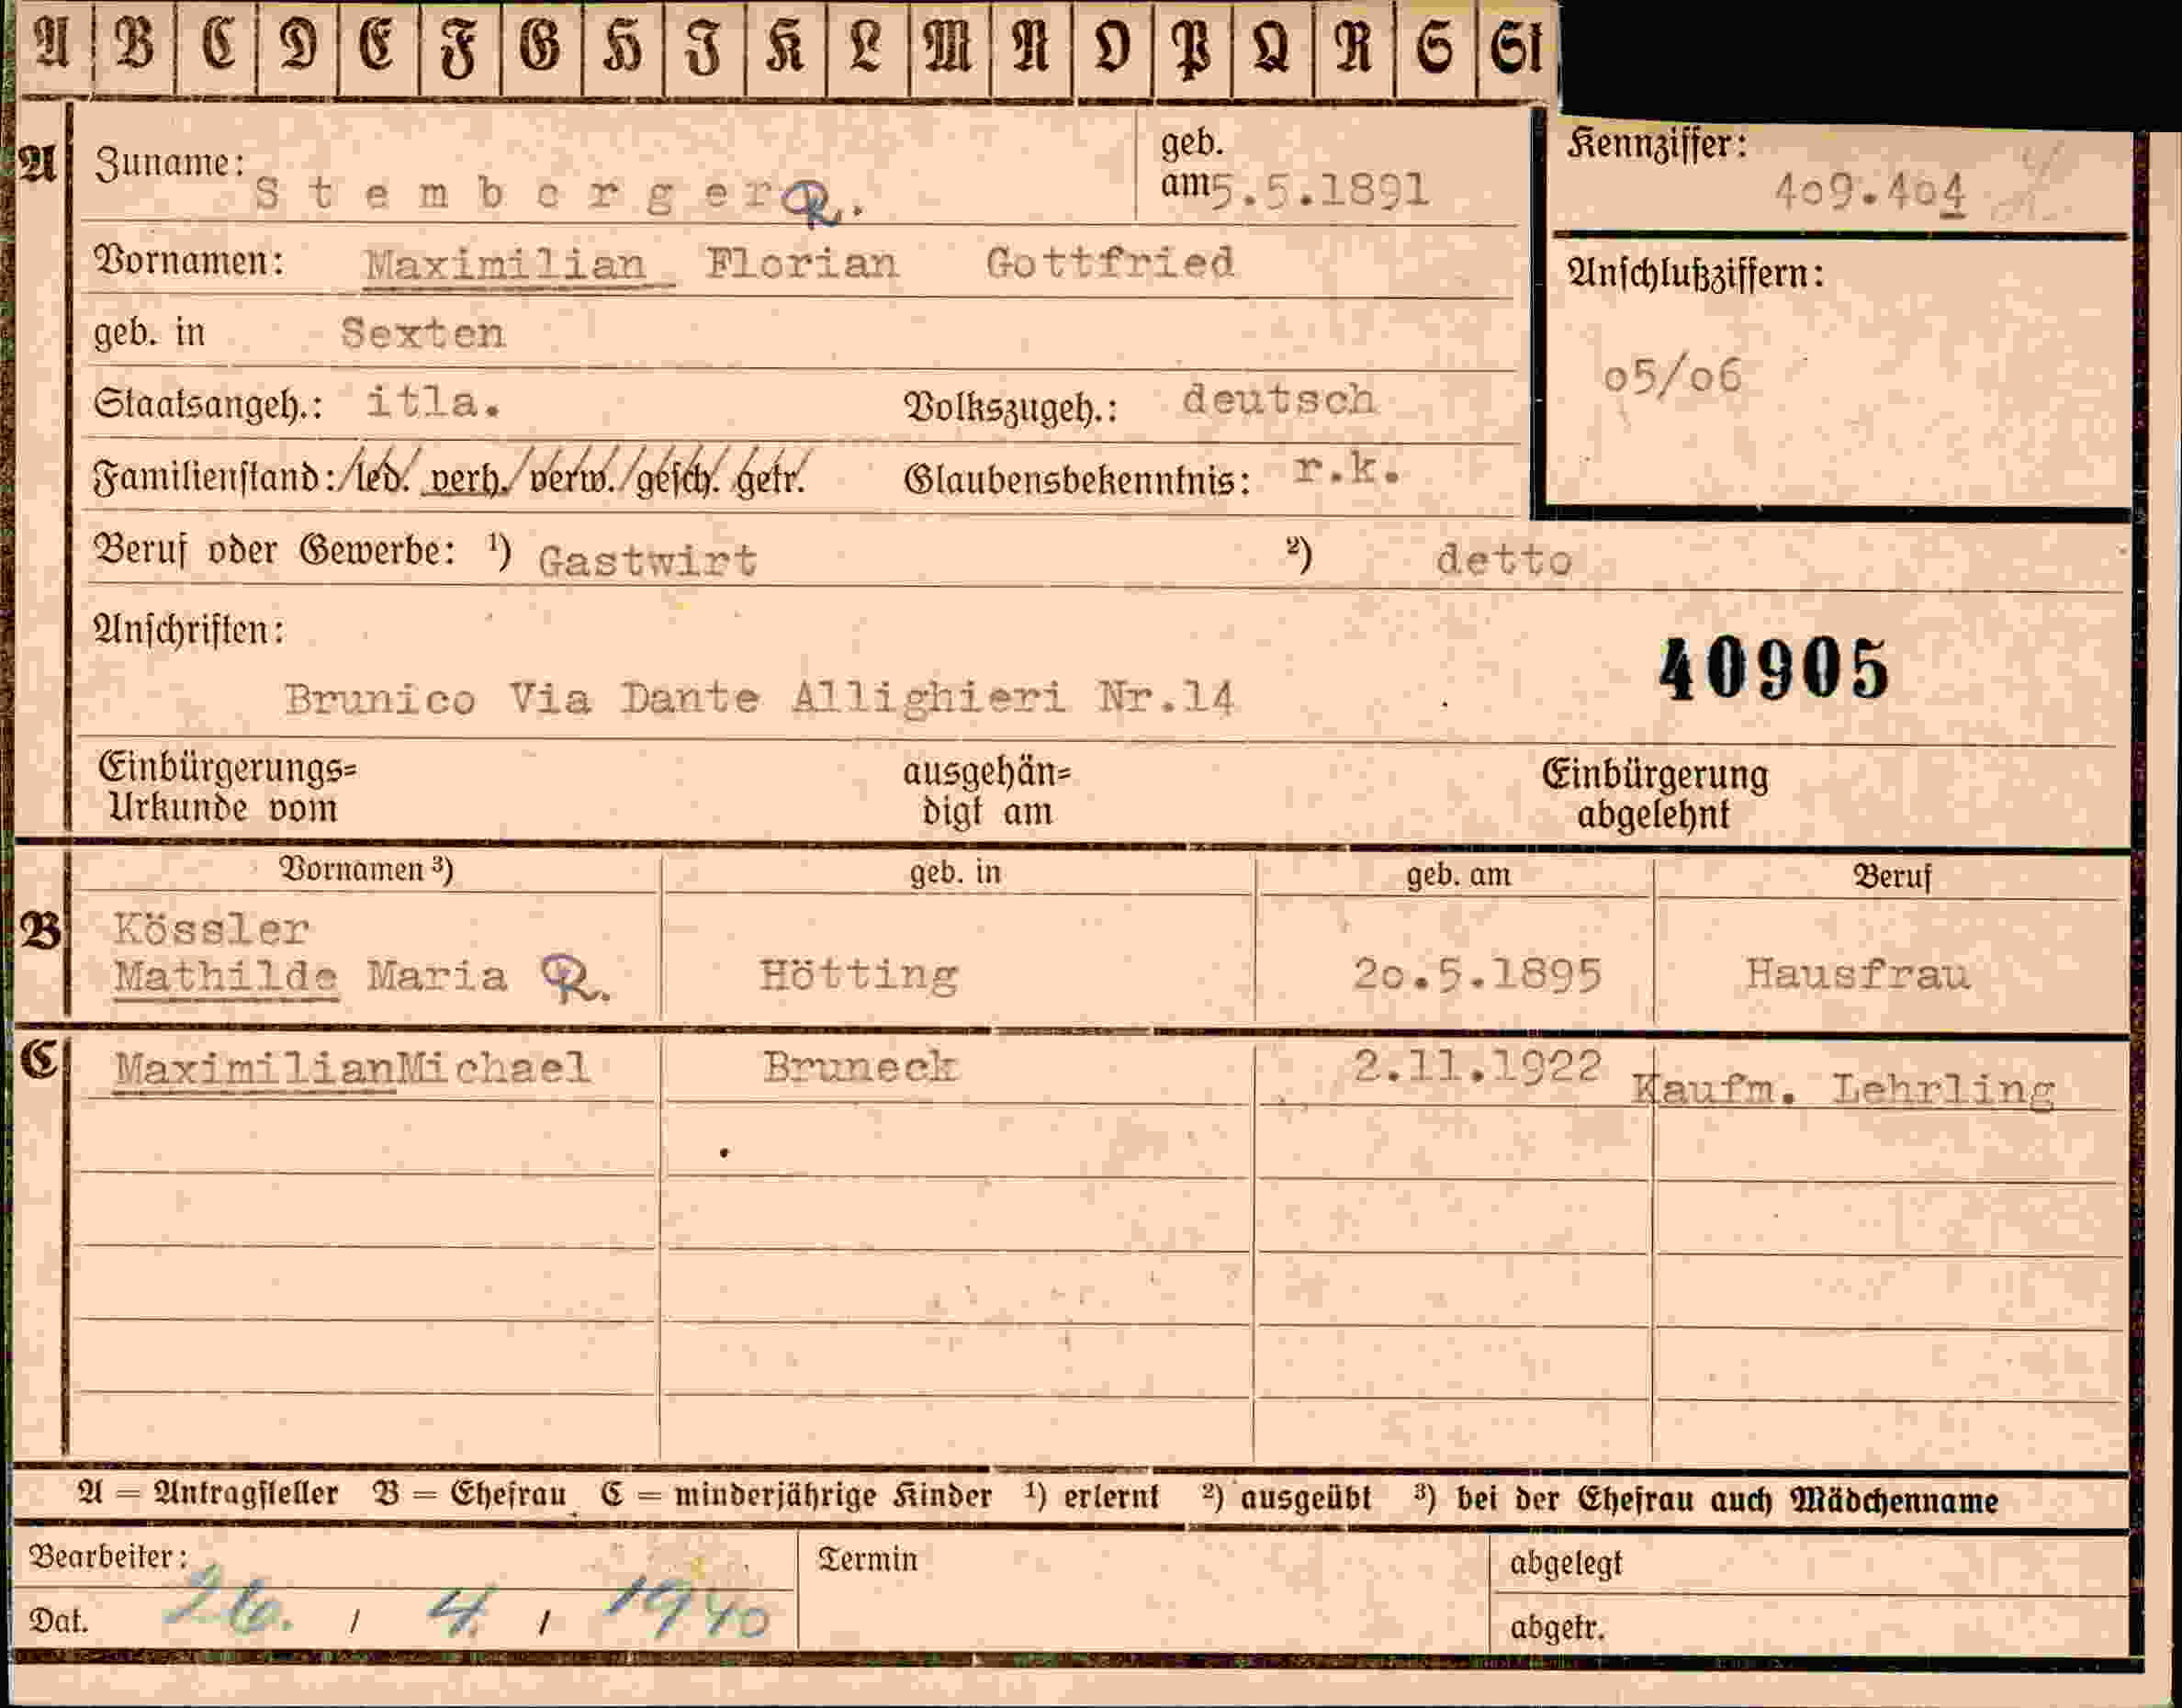 A B C D E F G H J K L M N O P Q R S St
A Zuname: Stemberger R. geb. am 5.5.1891 Kennziffer: 409.404
Vornamen: Maximilian Florian Gottfried Anschlußziffern:
geb. in Sexten
05/06
Staatsangeh.: itla. Volkszugeh.: deutsch
Familienstand: led. verh. verw. gesch. getr. Glaubensbekenntnis: r.k.
Beruf oder Gewerbe: ¹) Gastwirt ²) detto
Anschriften:
40905
Brunico Via Dante Allighieri Nr.14
Einbürgerungs= ausgehän= Einbürgerung
Urkunde vom digt am abgelehnt
Vornamen ³) geb. in geb. am Beruf
B Kössler
Mathilde Maria R. Hötting 20.5.1895 Hausfrau
C MaximilianMichael Bruneck 2.11.1922 Kaufm. Lehrling
A = Antragsteller B = Ehefrau C = minderjährige Kinder ¹) erlernt ²) ausgeübt ³) bei der Ehefrau auch Mädchenname
Bearbeiter: Termin abgelegt
Dat. 26. / 4. / 1940 abgetr.